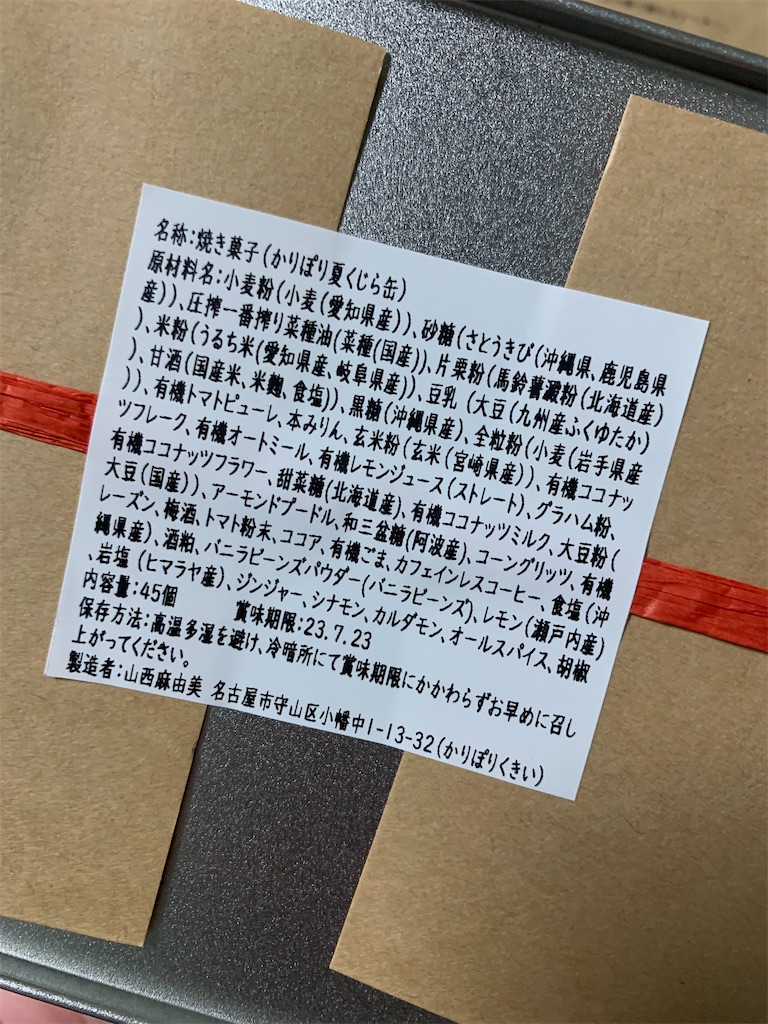 名称:焼き菓子(かりぽり夏くじら缶)
原材料名:小麦粉(小麦(愛知県産))、砂糖(さとうきび(沖縄県、鹿児島県
産))、圧搾一番搾り菜種油(菜種(国産))、片栗粉(馬鈴薯澱粉(北海道産)
)、米粉(うるち米(愛知県産、岐阜県産))、豆乳(大豆(九州産ふくゆたか)
)、甘酒(国産米、米麹、食塩))、黒糖(沖縄県産)、全粒粉(小麦(岩手県産
))、有機トマトピューレ、本みりん、玄米粉(玄米(宮崎県産))、有機ココナッ
ツフレーク、有機オートミール、有機レモンジュース(ストレート)、グラハム粉、
有機ココナッツフラワー、甜菜糖(北海道産)、有機ココナッツミルク、大豆粉(
大豆(国産))、アーモンドプードル、和三盆糖(阿波産)、コーングリッツ、有機
レーズン、梅酒、トマト粉末、ココア、有機ごま、カフェインレスコーヒー、食塩(沖
縄県産)、酒粕、バニラビーンズパウダー(バニラビーンズ)、レモン(瀬戸内産)
、岩塩(ヒマラヤ産)、ジンジャー、シナモン、カルダモン、オールスパイス、胡椒
内容量:45個 賞味期限:23.7.23
保存方法:高温多湿を避け、冷暗所にて賞味期限にかかわらずお早めに召し
上がってください。
製造者:山西麻由美 名古屋市守山区小幡中1-13-32(かりぽりくきい)